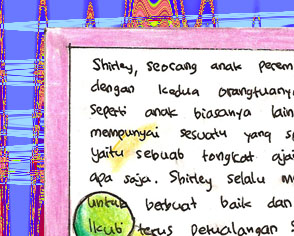 Shirley, seorang anak perem
dengan kedua orangtuany
seperti anak biasanya lain
mempunyai sesuatu yang sp
yaitu sebuah tongkat ajai
apa saja. Shirley selalu m
untuk berbuat baik dan
Ikuti terus petualangan s